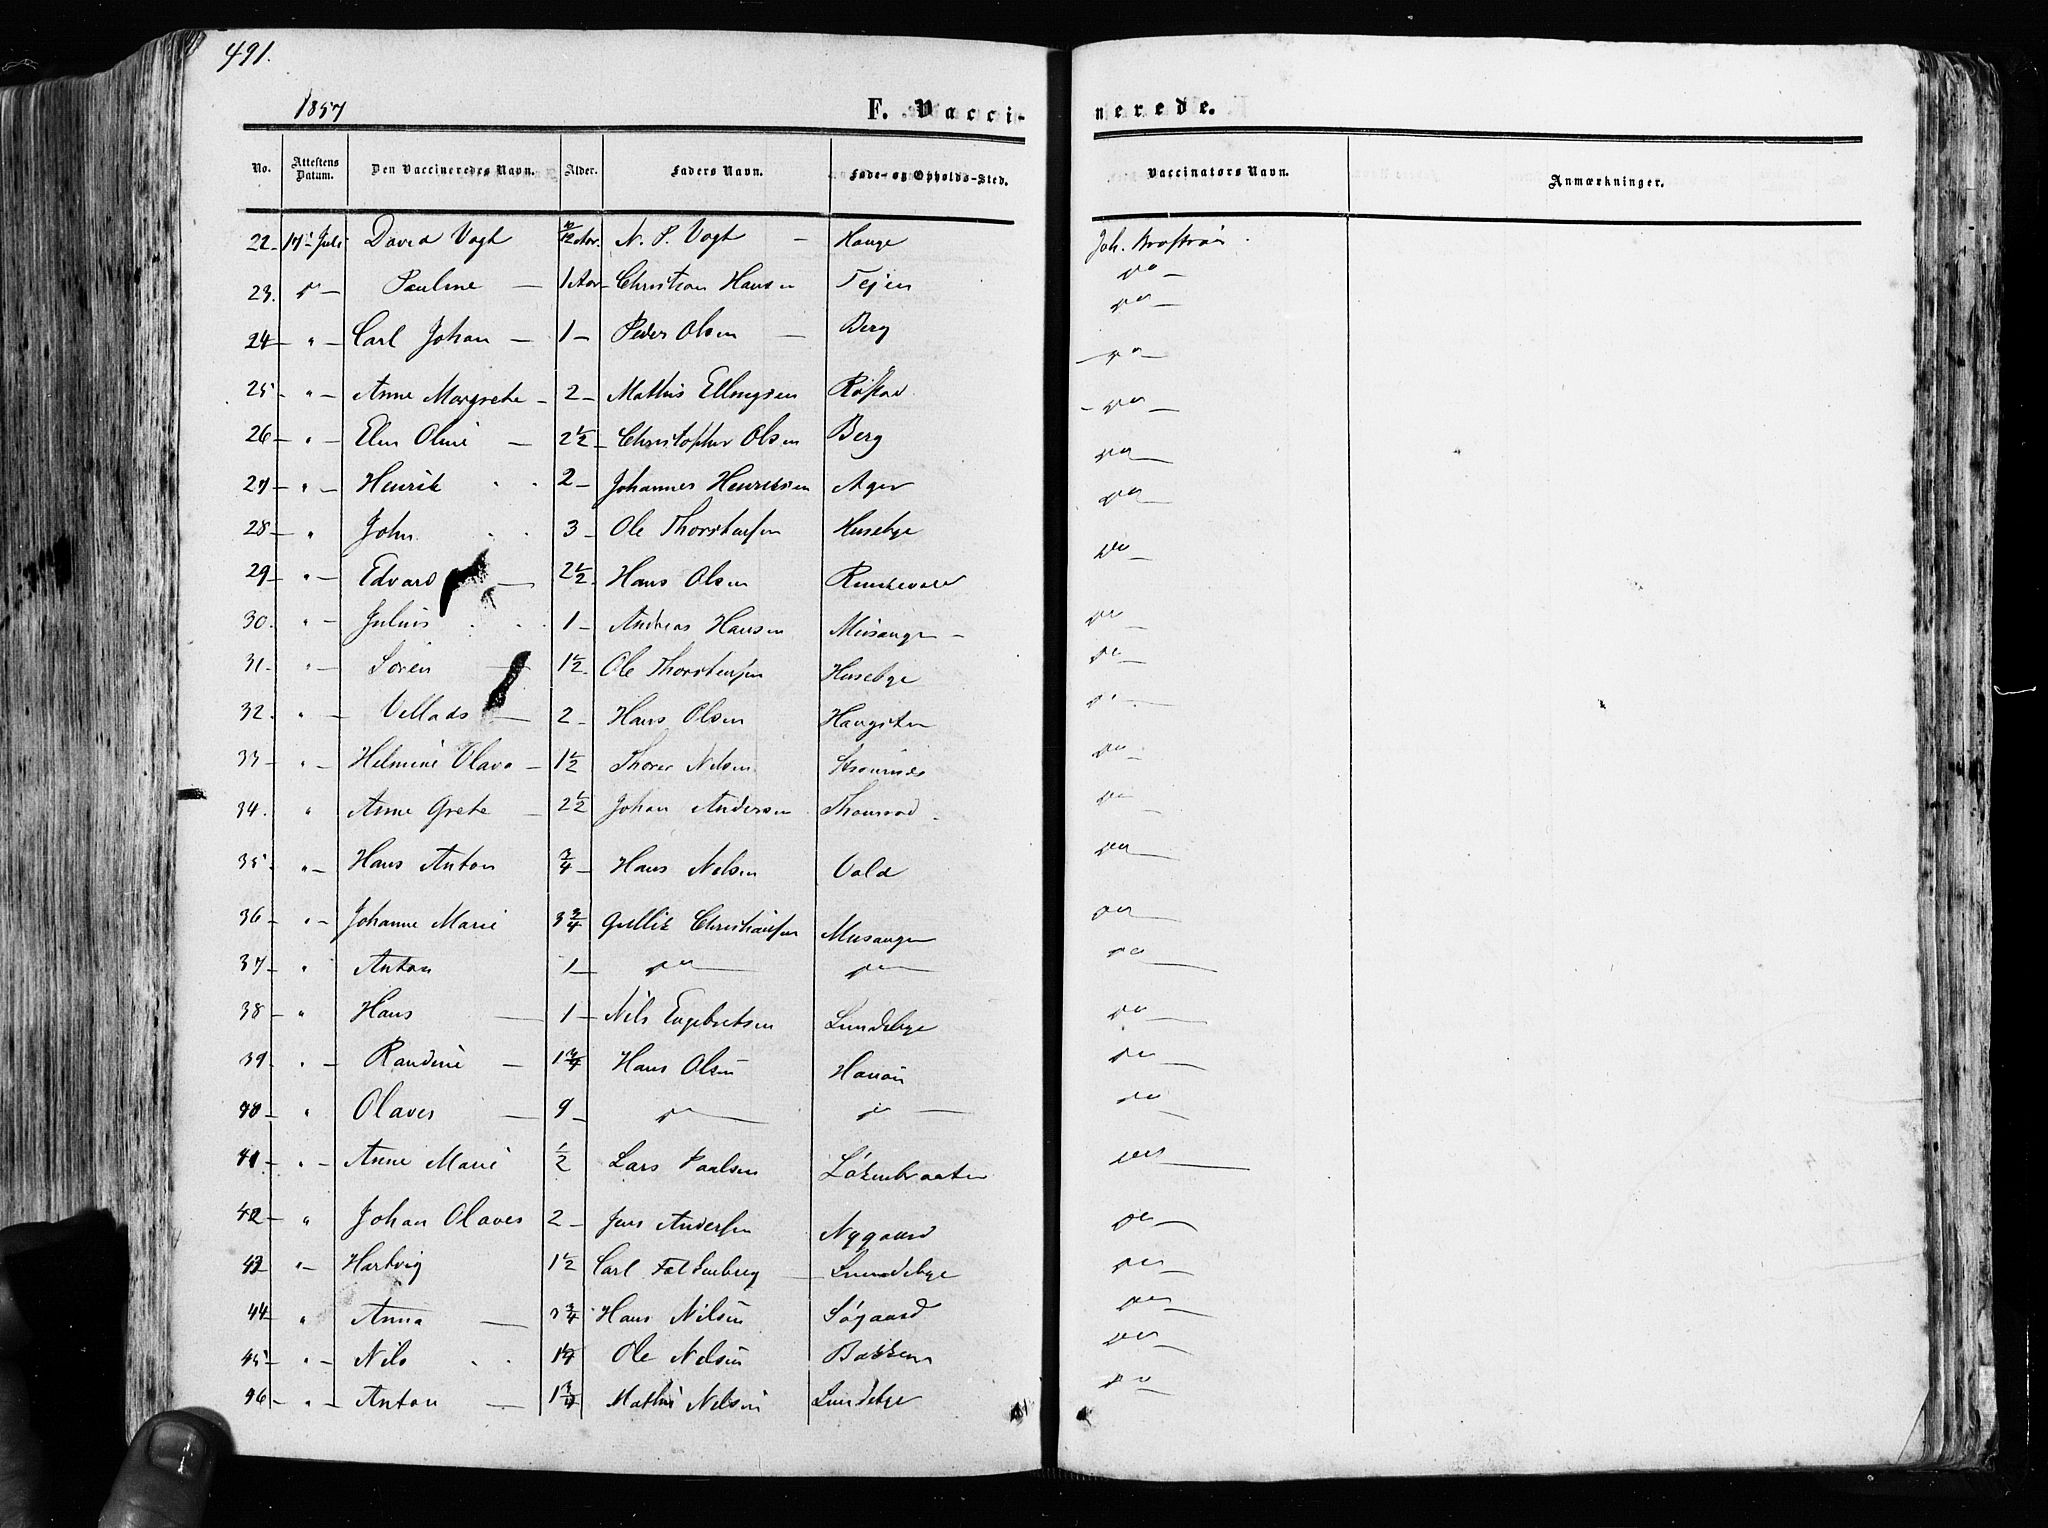 491.
1857 F. Vacci- nerede.
No. Attestens Datum. Den Vaccineredes Navn. Alder. Faders Navn. Føde- og Opholds-Sted. Vaccinators Navn. Anmærkninger.
22 - 17 Juli David Vogt N. P. Vogt - Hauge Joh.
23. Pauline - 1 Aar - Christian Hansen Tejen do -
24 - " - Carl Johan - 1 - Peder Olsen - Berg do -
25 - " - Anne Margrete - 2 - Mathis Ellingsen Røstad - do -
26 - " - Oline - 2 1/2 - Christopher Olsen Berg - do -
27 - " - Henrik 2 - Johannes Henriksen Ager do -
28 - " John 3 - Ole Thorstensen Husebye do -
29 - " - Edvard - 2 1/2 Hans Olsen do -
30. " - Julius 1 - Andreas Hansen do -
31 - " - Søren - 1 1/2 Ole Thorstensen Husebye do -
32. " - Villads - 2 - Hans Olsen Haugsten do -
33 - " - Helmine Olava - 1 1/2 Thorer Nelsen do -
34. " Anne Grete - 2 1/2 Johan Andersen do -
35. " - Hans Anton 3/4 - Hans Nelsen Vold do -
36 - " - Johanne Marie 3 3/4 Gullik Christiansen do -
37 - " Anton 1 - do - do - do -
38 - " Hans - 1 - Nils Engebretsen Lundebye do -
39 " - Randine - 1 3/4 Hans Olsen do -
40 - " Olaves - 9 - do - do - do -
41 - " - Anne Marie 1/2 Lars Paalsen Løkenbraaten do -
42 - " Johan Olaves 2 - Jens Andersen Nygaard do -
43 - " - Hartvig 1 1/2 Carl Falkenberg - Lundebye do -
44 - " Anna - 3/4 Hans Nilsen Søgaard do -
45 - " - Nils Ole Nelsen Bakken do -
46 - " - Anton - 1 3/4 Mathis Nelsen Lundebye do -